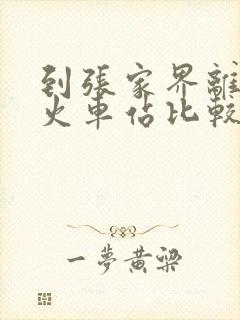 到張家界離
火車佔比較
一夢黃梁